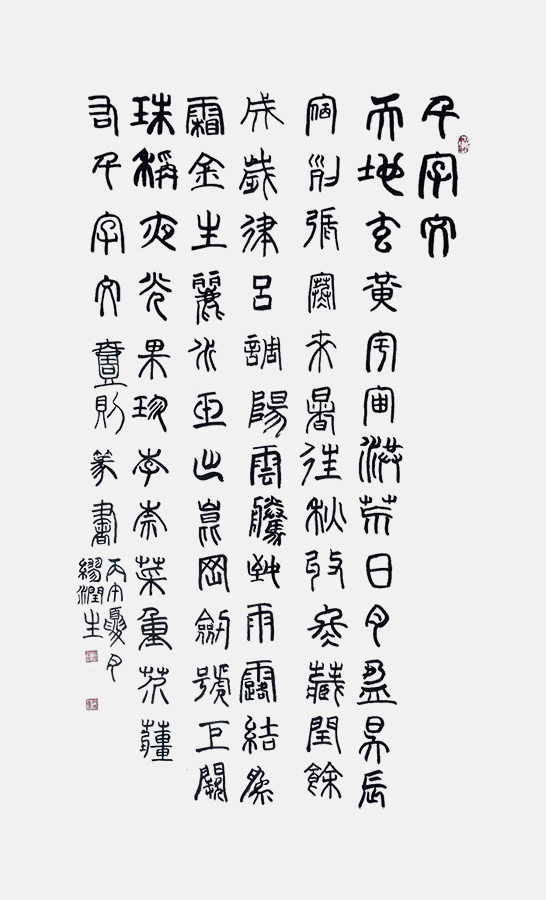 千字文
天地玄黃宇宙洪荒日月盈昃辰
宿列張寒來暑往秋收冬藏閏餘
成歲律呂調陽雲騰致雨露結為
霜金生麗水玉出崑岡劍號巨闕
珠稱夜光果珍李柰菜重芥薑
右千字文壹則篆書
丙夏月
繆潤生